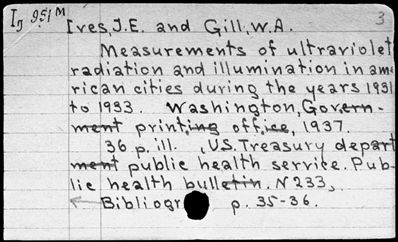 In 951M
3
Ives, J.E. and Gill, W.A.
Measurements of ultraviolet
radiation and illumination in ame
rican cities during the years 1931
to 1933. Washington, Govern-
ment printing office, 1937.
36 p. ill. (US. Treasury depart
ment public health service. Pub-
lic health bulletin. N 233)
Bibliogr p. 35-36.